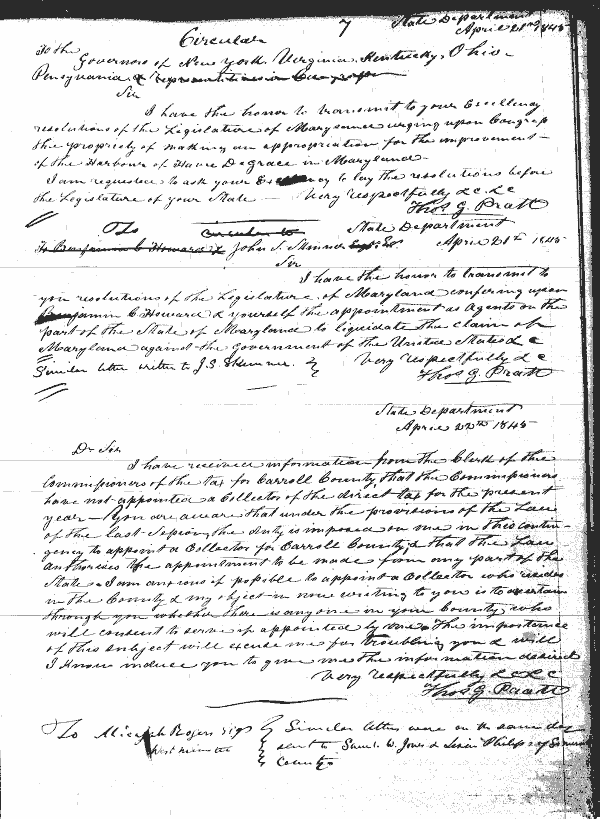 7
State Department
April 21st 1845
Circular
To the
Governors of New York Virginia, Kentucky, Ohio
Pensylvania & representatives in Congress
Sir
I have the honor to transmit to your Excellency
resolutions of the Legislature of Maryland urging upon Congress
the propriety of making an appropriation for the improvement
of the Harbour of Havre De grace in Maryland
I am requested to ask your Excellency to lay the resolutions before
the Legislature of your State — Very respectfully &c &c
Thos G. Pratt
To Circular to State Department
To Benjamin C Howard & John S. Skinner Esqr April 21st 1845
Sir
I have the honor to transmit to
you resolutions of the Legislature of Maryland confering upon
Benjamin C Howard & yourself the appointment as Agents on the
part of the State of Maryland to liquidate the claim of
Maryland against the Government of the United States &c
Similar letter written to J. S. Skinner. Very respectfully &c
Thos G. Pratt
State Department
April 22nd 1845
Dr Sir
I have received information from the Clerk of the
Commissioners of the tax for Carroll County, that the Commissioners
have not appointed a Collector of the direct tax for the present
year — You are aware that under the provisions of the Law
of the last Session, the duty is imposed on me in this contin-
gency to appoint a Collector for Carroll County & that the Law
authorises the appointment to be made from any part of the
State. I am anxious if possible to appoint a Collector who resides
in the County & my object in now writing to you is to ascertain
through you whether there is any one in your County, who
will consent to serve if appointed by me. The importance
of this subject will excuse me for troubling you & will
I know induce you to give me the information desired
Very respectfully &c &c
Thos G. Pratt
To Micajah Rogers Esqr Similar letters were on the same day
Westminster sent to Saml. W. Jones & Levin Philips of Somerset
County